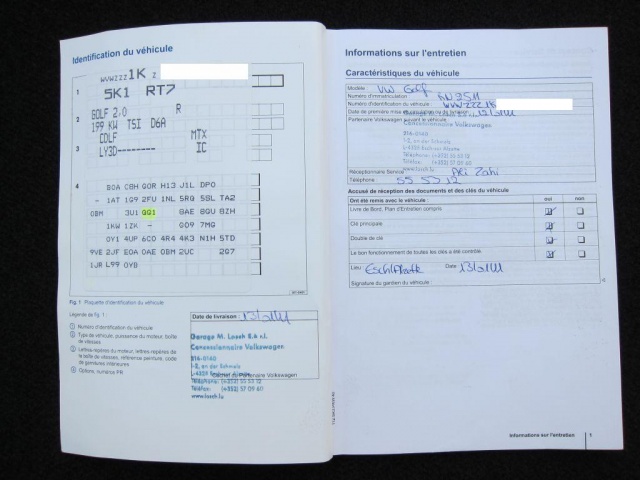 Identification du véhicule
WVWZZZ1K Z
1
5K1 RT7
2
GOLF 2.0 R
199 KW TSI D6A
3
COLF MTX
LY3D-------- IC
4
BOA CBH GOR H13 J1L DPO
- 1AT 1G9 2FU 1NL 5RQ 5BL TA2
0BM 3U1 QG1 8AE 8QU 8ZH
1KW 1ZK - 0D9 7MG
0Y1 4UP 6CO 4R4 4K3 N1H 5TD
9VE 2JF E0A 0AE 0BM 2UC 2G7
1JR L99 0YB
Fig. 1 Plaquette d'identification du véhicule
Légende de fig. 1 :
1 Numéro d'identification du véhicule
2 Type de véhicule, puissance du moteur, boîte de vitesses
3 Lettres-repères du moteur, lettres-repères de la boîte de vitesses, référence peinture, code de garnitures intérieures
4 Options, numéros PR
Date de livraison :
Garage M. Losch S.à r.l.
Concessionnaire Volkswagen
1-2, an der Schmelz
L-4359
Cachet du Partenaire Volkswagen
Téléphone: (+352) 55 53 12
Téléfax: (+352) 57 09 60
www.losch.lu
Informations sur l'entretien
Caractéristiques du véhicule
Modèle : VW Golf
Numéro d'immatriculation
Numéro d'identification du véhicule : WVWZZZ1K
Date de première mise en
Partenaire Volkswagen suivant le véhicule
Concessionnaire Volkswagen
1-2, an der Schmelz
Réceptionnaire Service
Téléphone 55 53 12
Accusé de réception des documents et des clés du véhicule
Ont été remis avec le véhicule : oui non
Livre de Bord, Plan d'Entretien compris
Clé principale
Double de clé
Le bon fonctionnement de toutes les clés a été contrôlé
Lieu : Date
Signature du gardien du véhicule :
Informations sur l'entretien 1